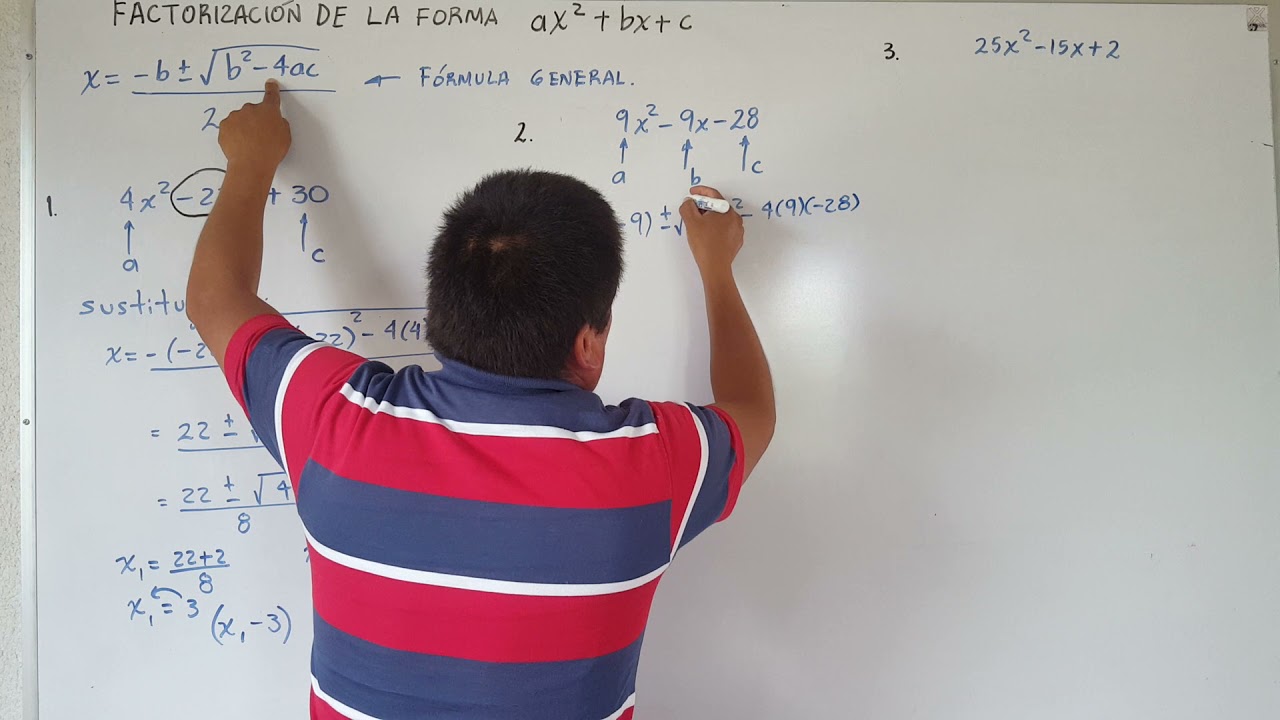 FACTORIZACIÓN DE LA FORMA ax² + bx + c
x = -b ± √b² - 4ac
2
← FÓRMULA GENERAL.
1.
4x² -2 + 30
a c
x = -(-2 22)² - 4(4
= 22 ±
= 22 ± √4
8
x₁ = 22+2
8
x₁ = 3 (x₁ - 3)
2.
9x² - 9x - 28
a b c
9) ± √ ² - 4(9)(-28)
3. 25x² - 15x + 2